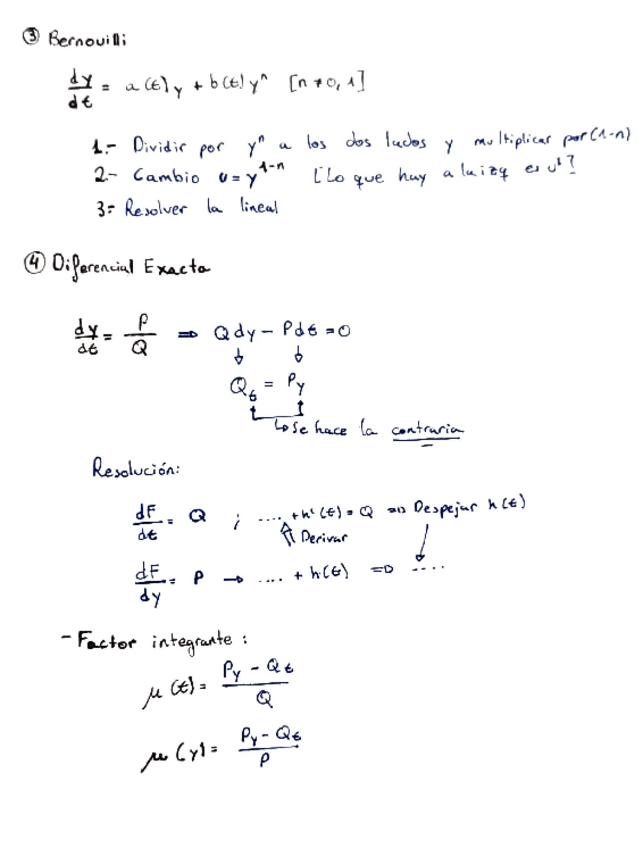 ③ Bernouilli
dy/dt = a(t)y + b(t)yⁿ [n ≠ 0, 1]
1.- Dividir por yⁿ a los dos lados y multiplicar por (1-n)
2.- Cambio u = y¹⁻ⁿ [Lo que hay a la izq es u']
3.- Resolver la lineal
④ Diferencial Exacta
dy/dt = P/Q ⇒ Qdy - Pdt = 0
↓ ↓
Qt = Py
↳ Se hace la contraria
Resolución:
dF/dt = Q ; .... + h'(t) = Q ⇒ Despejar h(t)
⇑ Derivar
dF/dy = P → .... + h(t) ⇒ ....
- Factor integrante:
μ(t) = (Py - Qt)/Q
μ(y) = (Py - Qt)/P